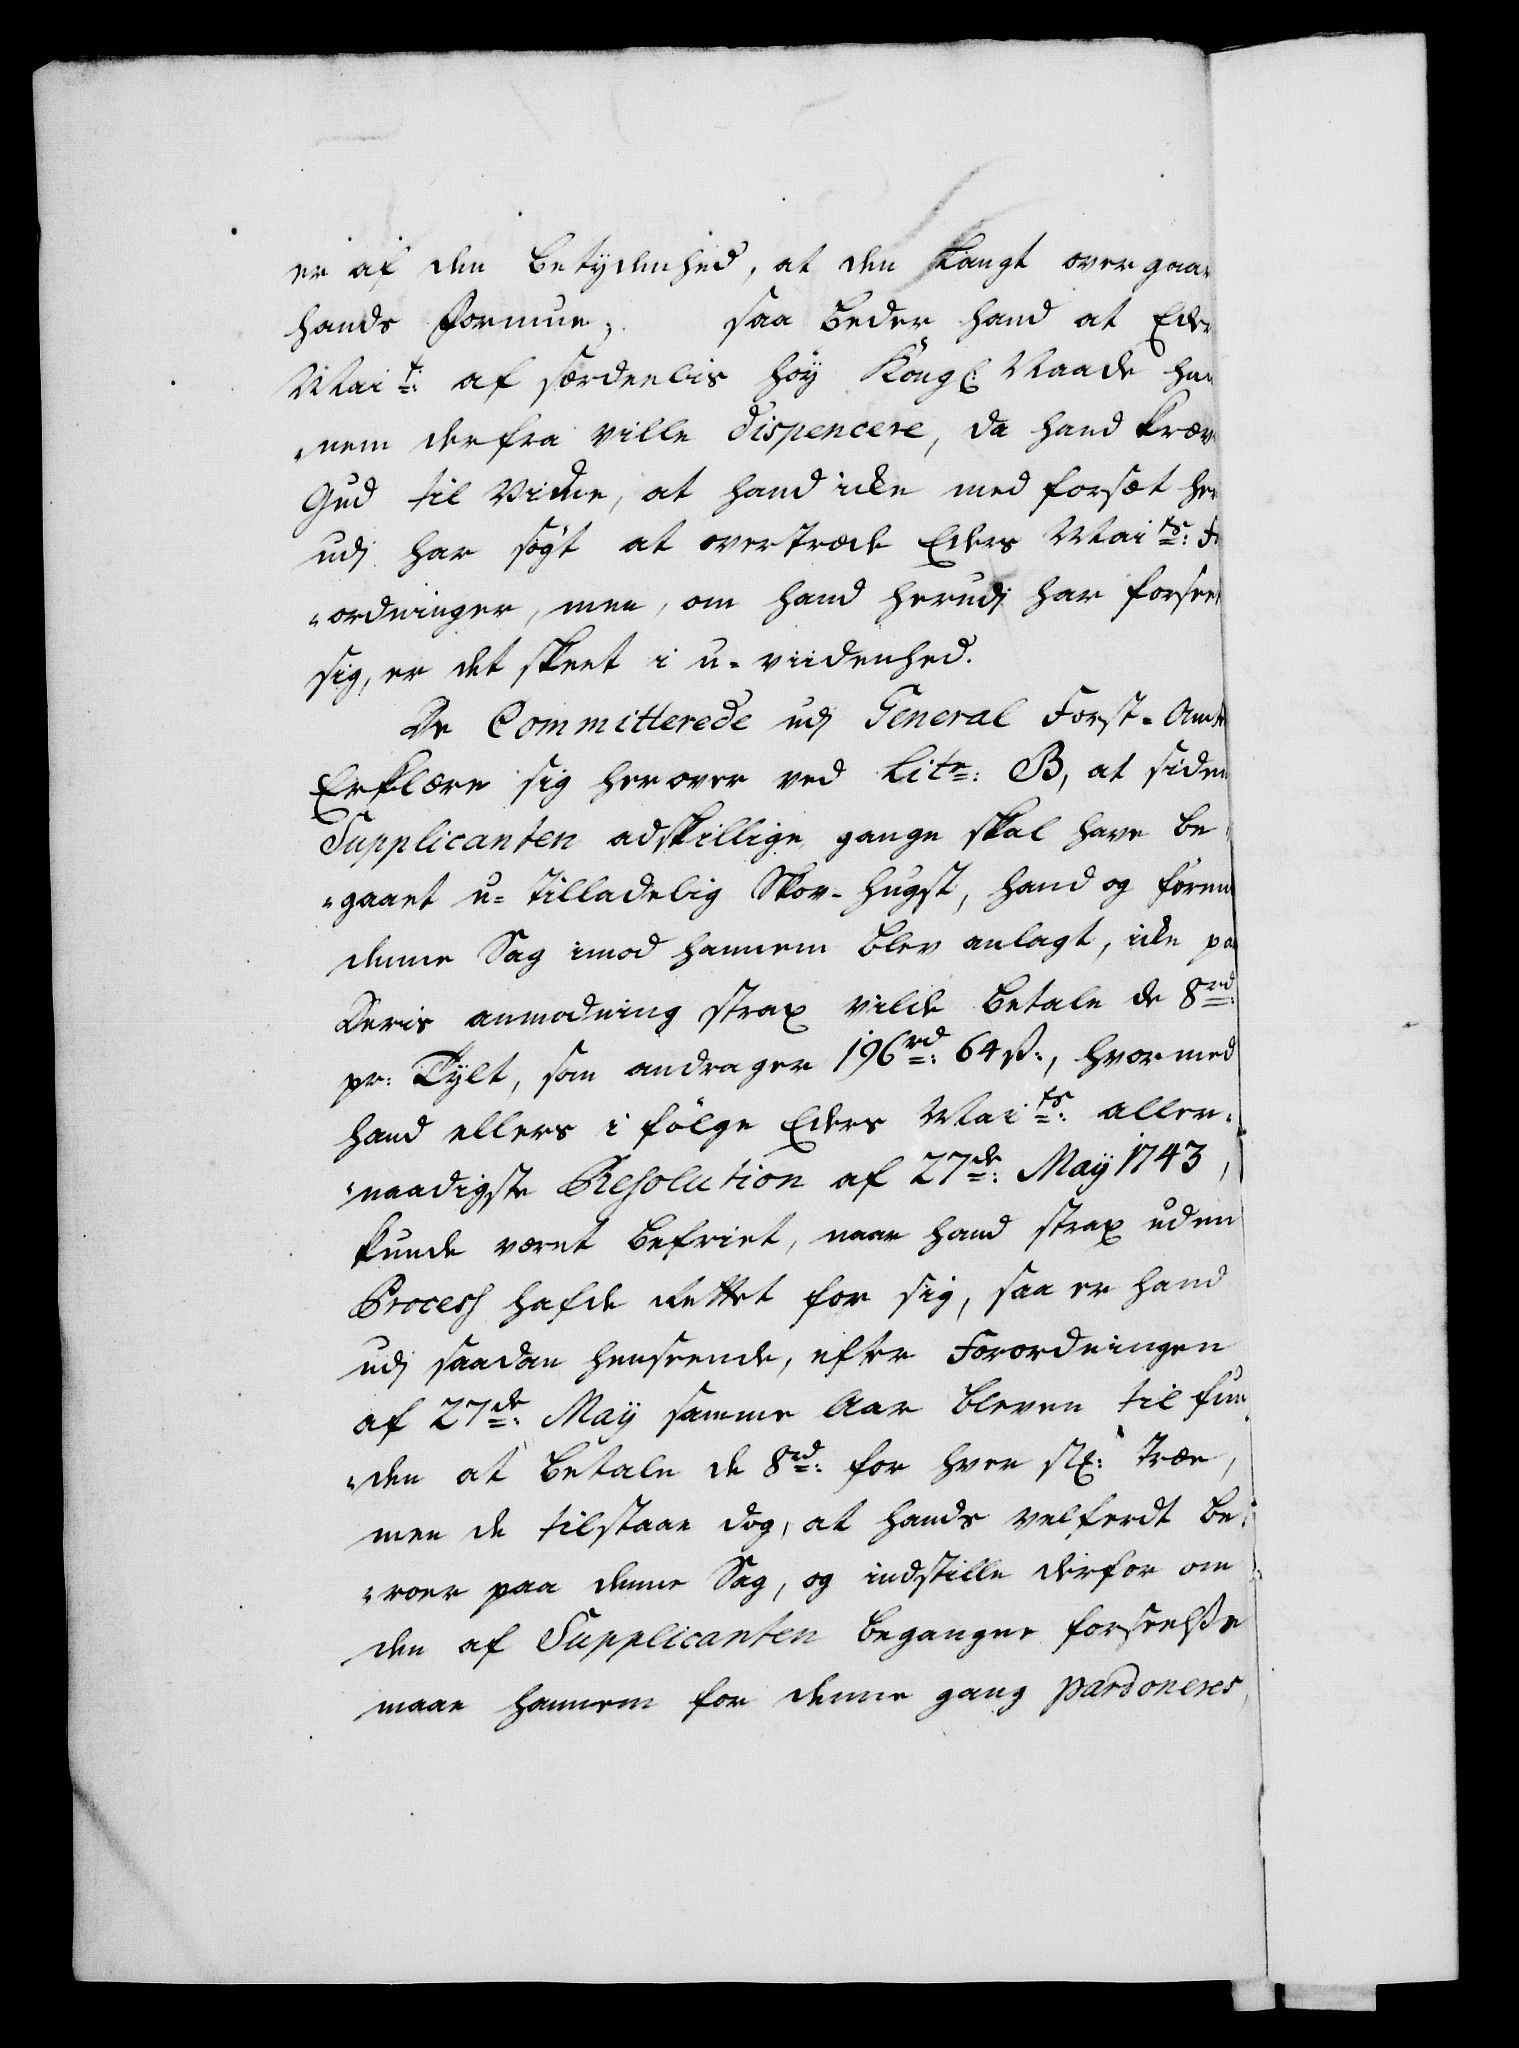 er af den betÿdenhed, at den langt overgaar
hands formue; saa beder hand at Eder
Mai<sup>t</sup>: af særdeelis høÿ Kongl: Naade han
„nem derfra ville dispencere, da hand kræv
Gud til Vidne, at hand icke med forsæt her
udj har søgt at overtræde Eders Mai<sup>ts</sup>: F
„ordninger, men, om hand herudj har forseet
sig, er det skeet i u-viidenhed.
De Committerede udj General Forst-Amte
Erklære sig herover ved Lit<sup>r</sup>: B, at siden
Supplicanten adskillige gange skal have be„
„gaaet u-tilladelig Skov-hugst, hand og førend
denne Sag imod hannem blev anlagt, icke paa
Deris anmodning strax vilde betale de 8<sup>rd</sup>:
pr: Tÿlt, som andrager 196<sup>rd</sup>: 64 ß:, hvormed
hand ellers i følge Eders Mai<sup>ts</sup>: aller„
„naadigste Resolution af 27<sup>de</sup>: Maÿ 1743,
kunde været befriet, naar hand strax uden
Process hafde rettet for sig, saa er hand
udj saadan henseende, efter Forordningen
af 27<sup>de</sup>: Maÿ samme Aar bleven tilfun„
„den at betale de 8<sup>rd</sup>: for hver st: Træe,
men de tilstaae dog, at hands velferdt be„
„roer paa denne Sag, og indstille derfor om
den af Supplicanten begangne forseelße
maae hannem for denne gang pardoneres,